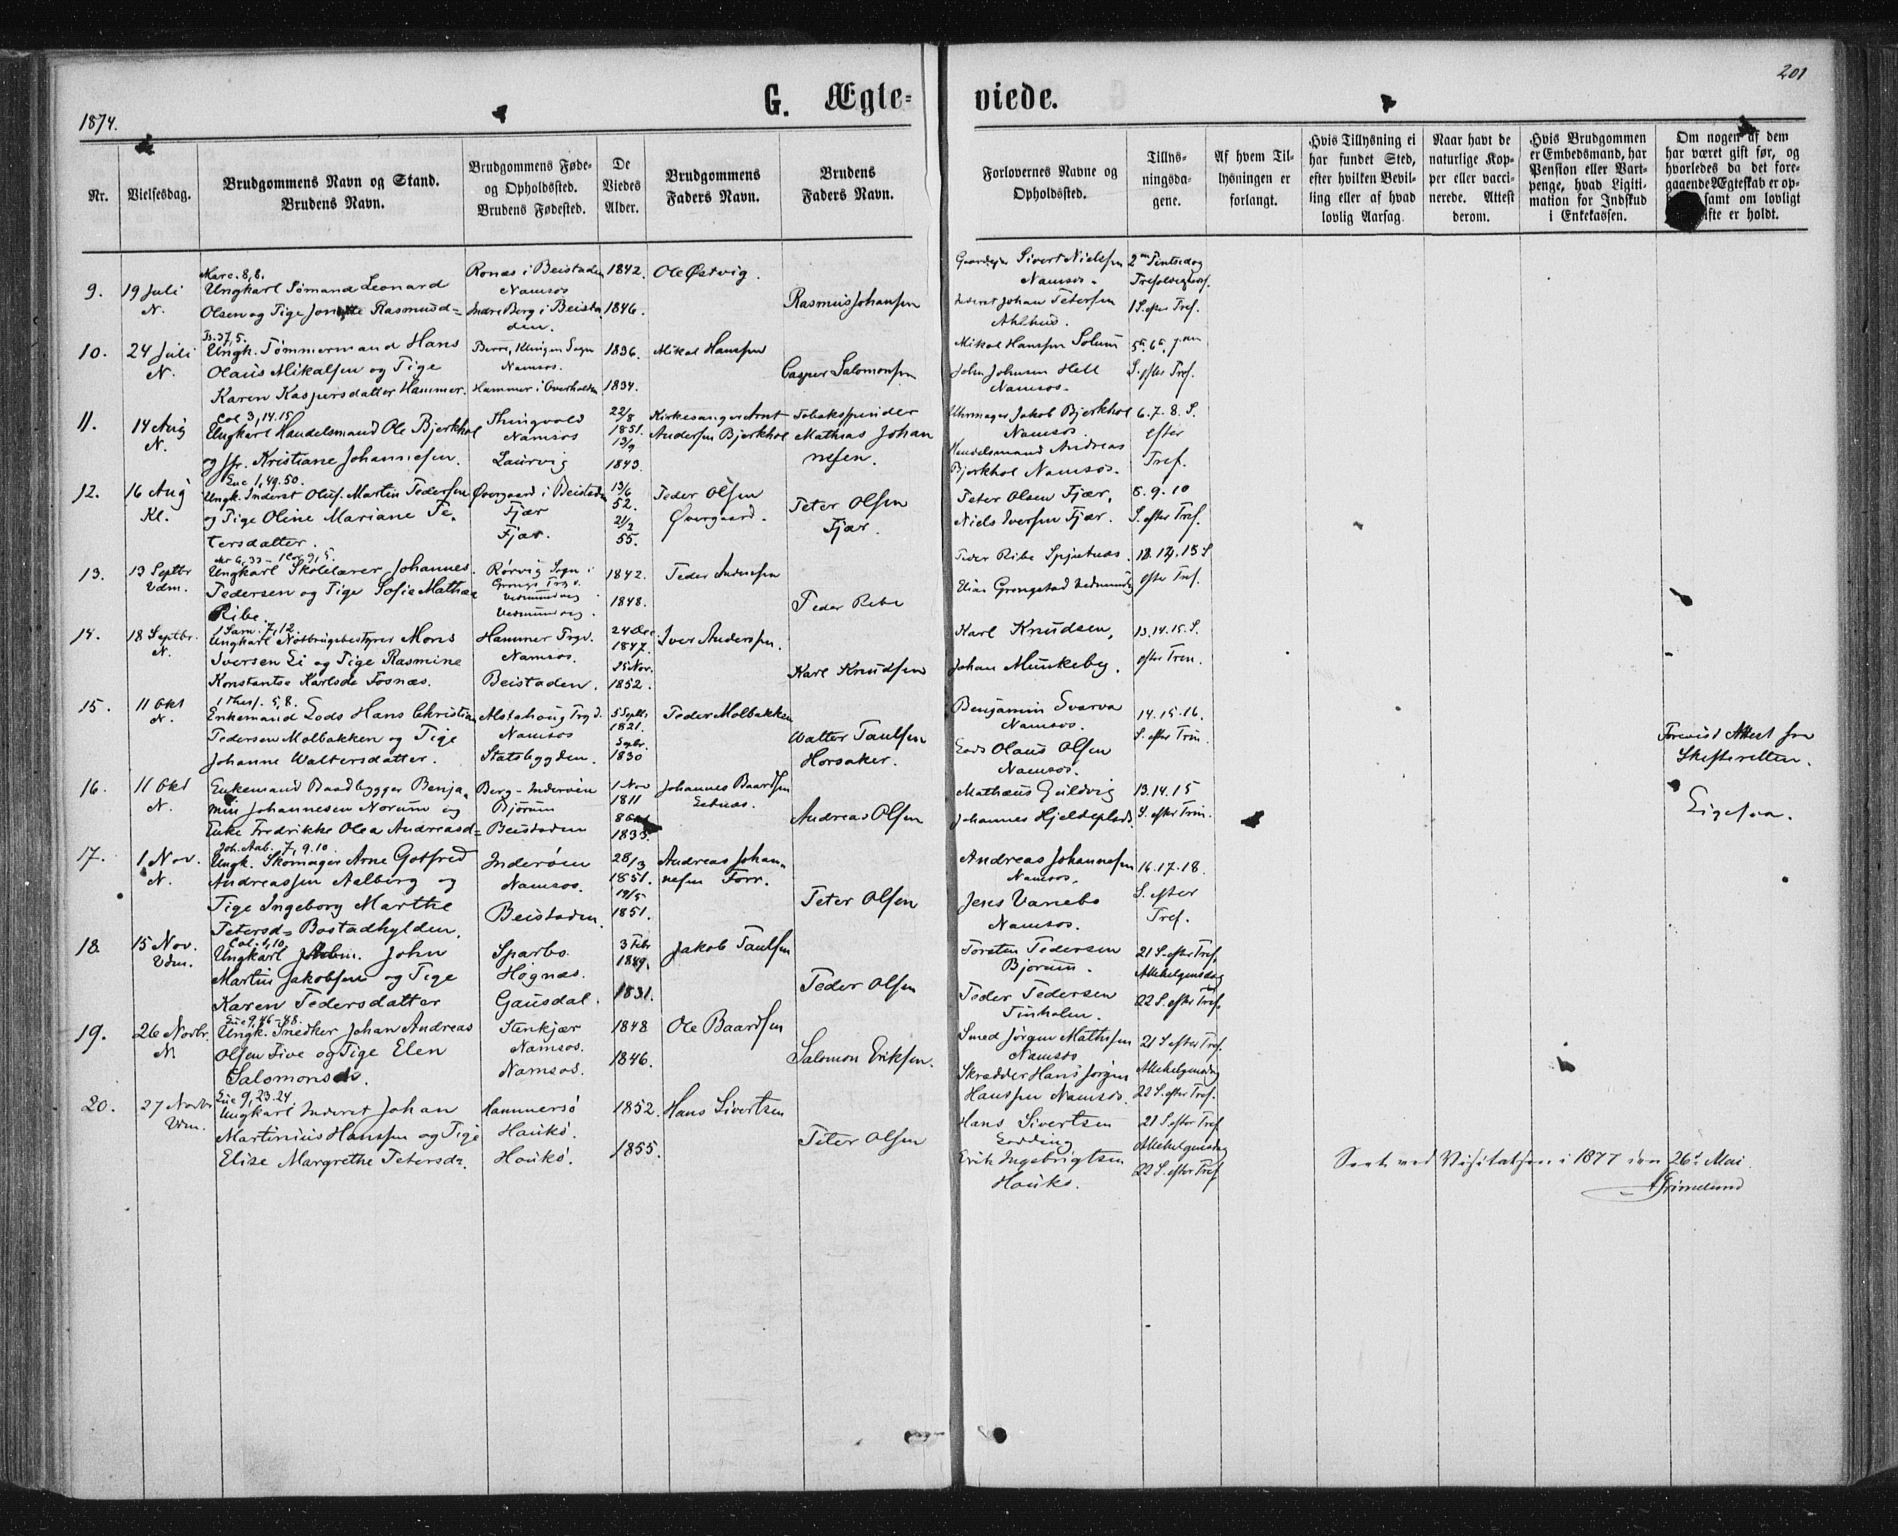 201
1874.
G. Ægte-
viede.
Nr.
Vielsesdag.
Brudgommens Navn og Stand.
Brudens Navn.
Brudgommens Føde-
og Opholdssted.
Brudens Fødested.
De
Viedes
Alder.
Brudgommens
Faders Navn.
Brudens
Faders Navn.
Forlovernes Navne og
Opholdssted.
Tillys-
ningsda-
gene.
Af hvem Til-
lysningen er
forlangt.
Hvis Tillysning ei
har fundet Sted,
efter hvilken Bevil-
ling eller af hvad
lovlig Aarsag.
Naar havt de
naturlige Kop-
per eller vacci-
nerede. Attest
derom.
Hvis Brudgommen
er Embedsmand, har
Pension eller Vart-
penge, hvad Ligiti-
mation for Indskud
i Enkekassen.
Om nogen af dem
har været gift før, og
hvorledes da det fore-
gaaende Ægteskab er op-
samt om lovligt
ifte er holdt.
9.
19 Juli
N.
Marc. 8,8.
Ungkarl Sømand Leonard
Olsen og Pige Rasmusd=
Ronæs i Beistaden
Namsos
Indre Berg i Beista
den.
1842.
1846.
Ole Østvig.
Rasmus Johansen
Gaardejer Sivert Nielsen
Namsos.
Inderst Johan Petersen
2den Pintsedag
1 S. efter Tref.
10.
24 Juli
N.
Ps. 37,5.
Ungk. Tømmermand Hans
Olaus Mikalsen og Pige
Karen Kaspersdatter Hammer.
Klingen Sogn
Namsos.
Hammer i Overhalden
1836.
1834.
Mikal Hanssen
Casper Salomonsen
Mikal Hanssen Solum
John Johnsen Hell
Namsos.
5te 6te 7nde
S. efter Tref.
11.
14 Aug
N.
Col 3,14.15
Ungkarl Handelsmand Ole Bjerkhol
og Jfr. Kristiane Johannesen.
Thingvold
Namsos
Laurvig
22/8
1851.
13/9
1843.
Kirkesanger Arnt
Andersen Bjerkhol
Tobaksspinder
Mathias Johan
nesen.
Uhrmager Jakob Bjerkhol
Namsos.
Handelsmand Andreas
Bjerkhol Namsos.
6. 7. 8. S.
efter
Tref.
12.
16 Aug
Kl.
Luc 1,49.50.
Ungk. Inderst Oluf Martin Pedersen
og Pige Oline Mariane Pe-
tersdatter.
Øvergaard i Beistaden
Fjær
Fjær.
13/6
52.
2/2
55.
Peder Olsen
Øvergaard.
Peter Olsen
Fjær.
Peter Olsen Fjær,
Niels Iversen Fjær.
8. 9. 10
S. efter Tref.
13.
13 Septbr
Vdm.
Mr 6,33 - 1 Cor 9,5.
Ungkarl Skolelærer Johannes
Pedersen og Pige Sofie Mathea
Ribe.
Rørvig Sogn i
Vedmundvig
Vedmundvig
1842.
1848.
Peder Anderssen
Peder Ribe
Peder Ribe Spjutnæs.
Elias Grongstad Vedmundv
13. 14. 15 S
efter Tref.
14.
18 Septbr.
N.
1 Sam. 7,12.
Ungkarl Notbrugsbestyrer Mons
Iversen Li og Pige Rasmine
Konstantse Karlsdr Fosnæs.
Hammer Prgd.
Namsos.
Beistaden.
24 Dec
1847.
25 Nov.
1852.
Iver Anderssen.
Karl Knudsen
Karl Knudsen,
Johan Munkeby.
13. 14. 15. S.
efter Tren.
15.
11 Okt
N.
1 Thess. 5,8.
Enkemand Lods Hans Christian
Pedersen Molbakken og Pige
Johanne Waltersdatter.
Alstahoug Prgd.
Namsos
Statsbygden.
5 Septbr
1821.
Sepbr.
1830
Peder Molbakken
Walter Paulsen
Horsaker.
Benjamin Svarva
Namsos.
Lods Olaus Olsen
Namsos.
14. 15. 16.
S. efter Trin.
Forevist Attest fra
Skifteretten.
16.
11 Okt
N.
Enkemand Baadbygger Benja-
min Johannesen Norum og
Enke Fredrikke Olea Andreasd=
Berg - Inderøen
Bjørum
Beistaden
1 Nov
1811
1835.
Johannes Baardsen
Andreas Olsen
Mathæus Guldvig
Johannes Hjeldeplads.
13. 14. 15
S. efter Trin.
Ligesaa.
17.
1 Nov.
N.
Joh. Aab. 7, 9.10.
Ungk. Skomager Arne Gotfred
Andreassen Aalberg og
Pige Ingeborg Marthe
Petersd= Bostadhylden.
Inderøen
Namsos.
Beistaden.
28/3
1851.
19/5
1851.
Andreas Johan-
nesen Forr.
Peter Olsen
Andreas Johannesen
Namsos.
Jens Vanebo
Namsos.
16. 17. 18.
S. efter
Tref.
18.
15 Nov.
Vdm.
Col. 1,10
Ungkarl John
Martin Jakobsen og Pige
Karen Pedersdatter
Sparbo
Høgnæs.
Gausdal.
3 Febr
1849.
1831.
Jakob Paulsen
Peder Olsen
Torsten Pedersen
Bjørum.
Peder Pedersen
Finholen.
21 S. efter Tref.
Allehelgensdag
22 S. efter Tref.
19.
26 Novbr.
N.
Luc 9,46-48.
Ungk. Snedker Johan Andreas
Olsen Five og Pige Elen
Salomonsdr.
Stenkjær
Namsos.
Namsos.
1848
1846.
Ole Baardsen
Salomon Eriksen.
Smed Jørgen Mathisen
Namsos
Skrædder Hans Jørgen
Hanssen Namsos.
21 S. efter Tref.
Allehelgensdag
22 S. efter Tref.
20.
27 Novbr
Vdm.
Luc 9,23.24.
Ungkarl Inderst Johan
Martinius Hanssen og Pige
Elise Margrethe Petersdr.
Hammersø
Houkø.
Houkø.
1852.
1855.
Hans Sivertsen
Peter Olsen
Hans Sivertsen
Lodding
Erik Ingebrigtsen
Houkø.
21 S. efter Tref
Allehelgensdag
22 S. efter Tref
Seet ved Visitatsen i 1877 den 26de Mai.
Grimelund